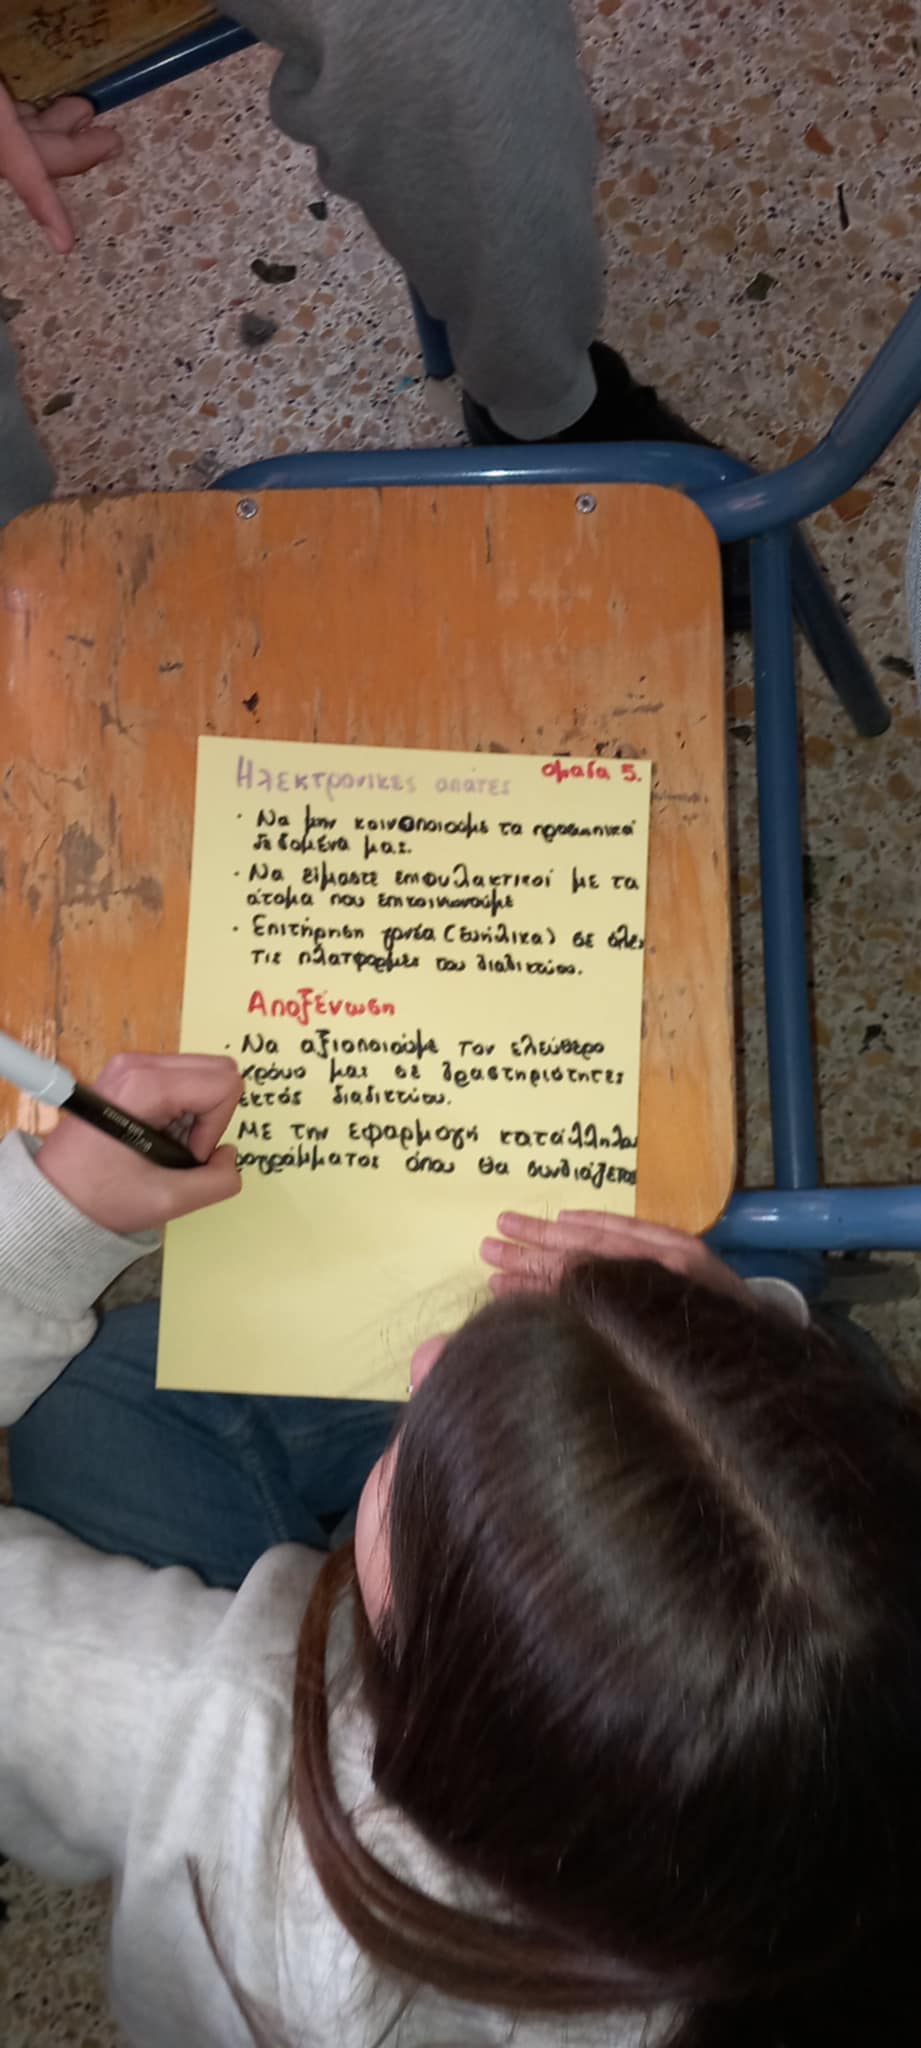 Ηλεκτρονικές απάτες
ομαδα 5.
· Να μην κοινοποιούμε τα προσωπικά
δεδομένα μας.
· Να είμαστε επιφυλακτικοί με τα
άτομα που επικοινωνούμε
· Επιτήρηση γονέα (ενήλικα) σε όλες
τις πλατφόρμες του διαδικτύου.
Αποξένωση
· Να αξιοποιούμε τον ελεύθερο
χρόνο μας σε δραστηριότητες
εκτός διαδικτύου.
Με την εφαρμογή κατάλληλου
προγράμματος όπου θα συνδιάζεται